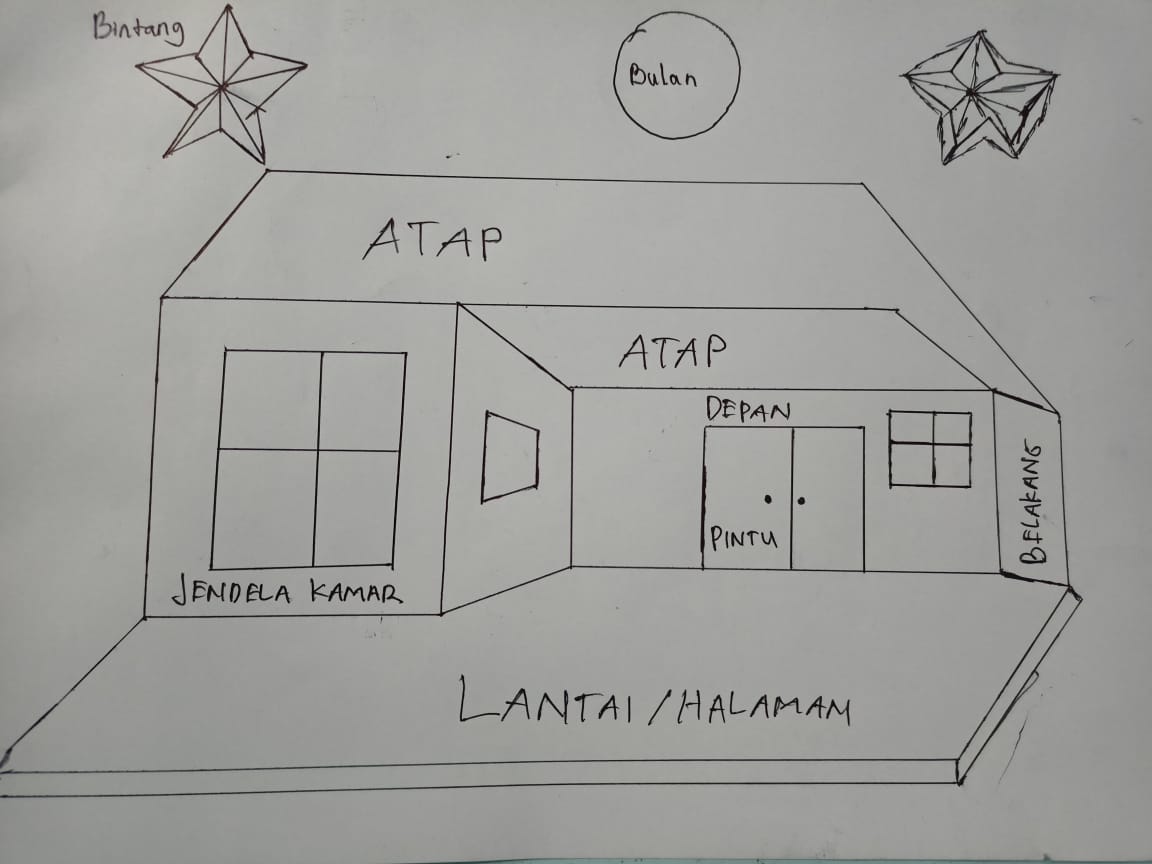 Bintang
Bulan
ATAP
ATAP
DEPAN
PINTU
BELAKANG
JENDELA KAMAR
LANTAI/HALAMAM